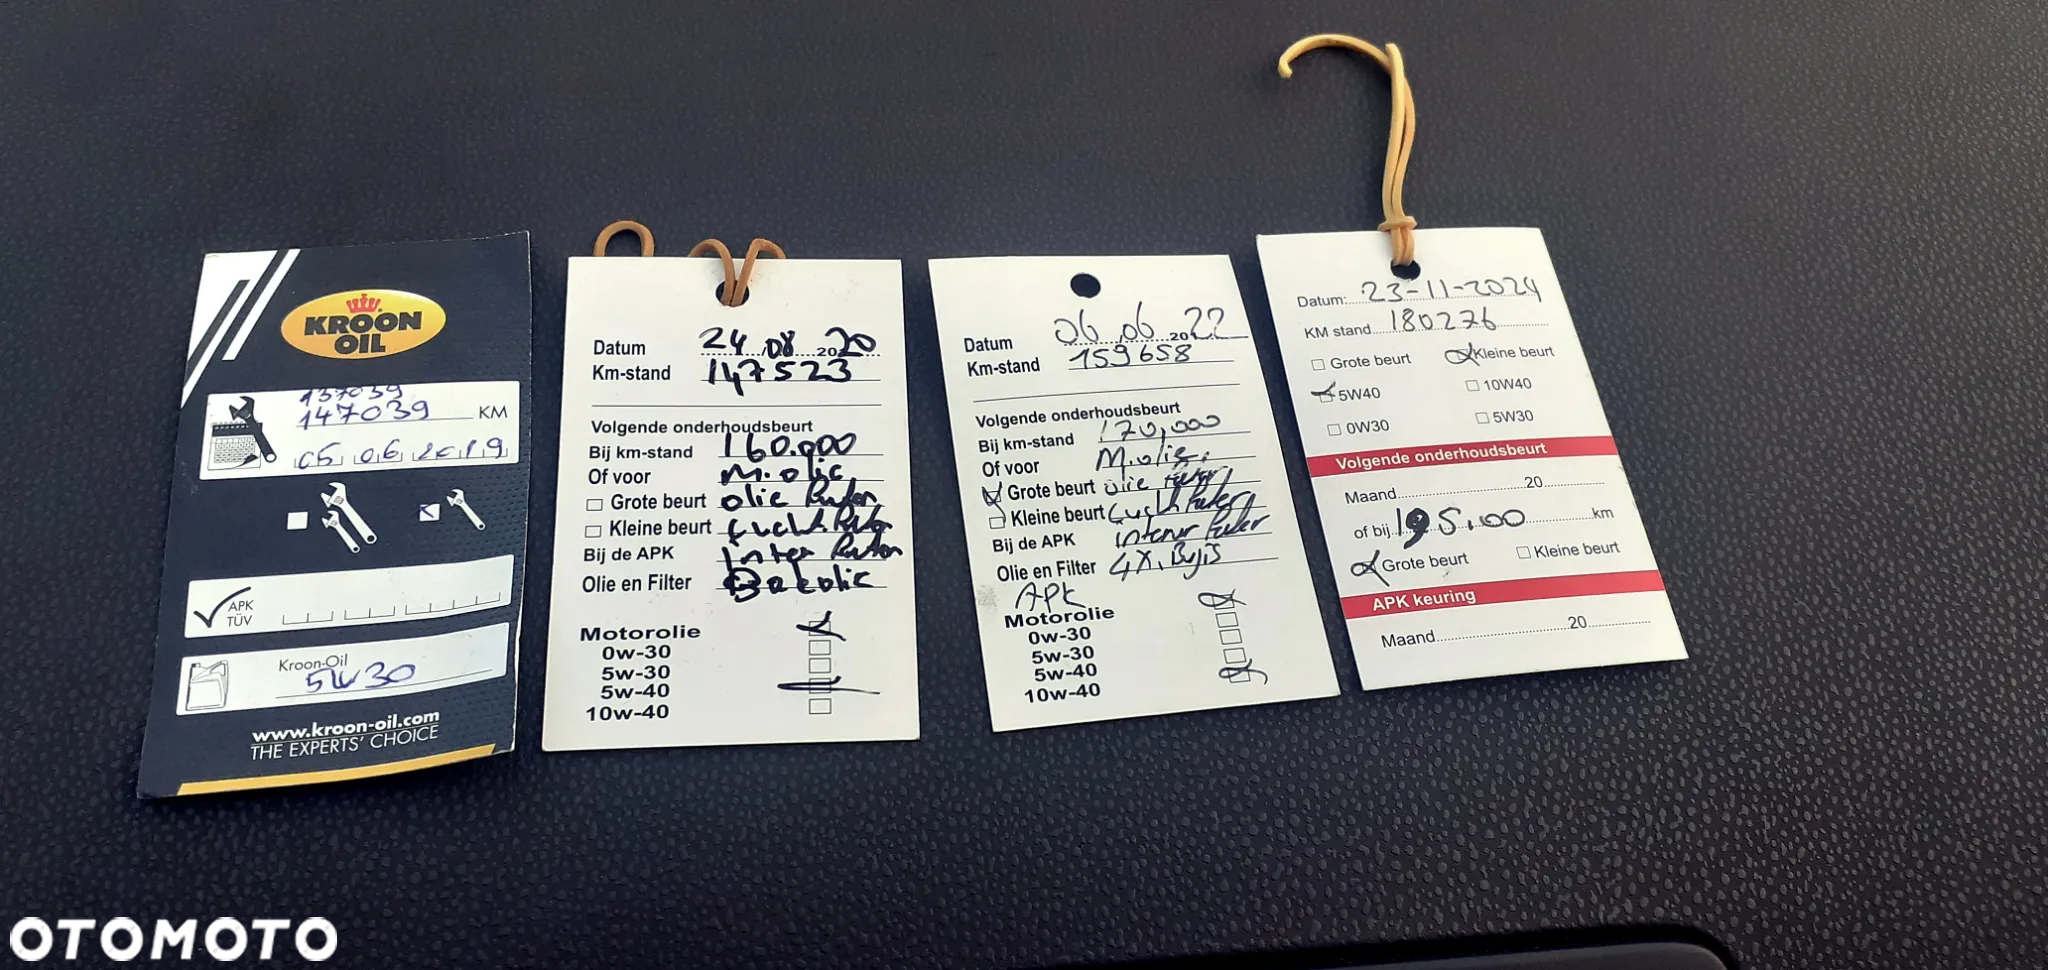 KROON
OIL
137039
147039 KM
05 06 2019
APK
TÜV
Kroon-Oil
5W30
www.kroon-oil.com
THE EXPERTS' CHOICE
Datum 24 08 2020
Km-stand 147523
Volgende onderhoudsbeurt
Bij km-stand 160.000
Of voor M.olie
Grote beurt olie
Kleine beurt
Bij de APK
Olie en Filter
Motorolie
0w-30
5w-30
5w-40
10w-40
Datum 06 06 2022
Km-stand 159658
Volgende onderhoudsbeurt
Bij km-stand 170,000
Of voor M.olie
Grote beurt olie
Kleine beurt
Bij de APK
Olie en Filter 4X
APK
Motorolie
0w-30
5w-30
5w-40
10w-40
Datum: 23-11-2024
KM stand 180276
Grote beurt Kleine beurt
5W40 10W40
0W30 5W30
Volgende onderhoudsbeurt
Maand 20
of bij 195.00 km
Grote beurt Kleine beurt
APK keuring
Maand 20
OTOMOTO